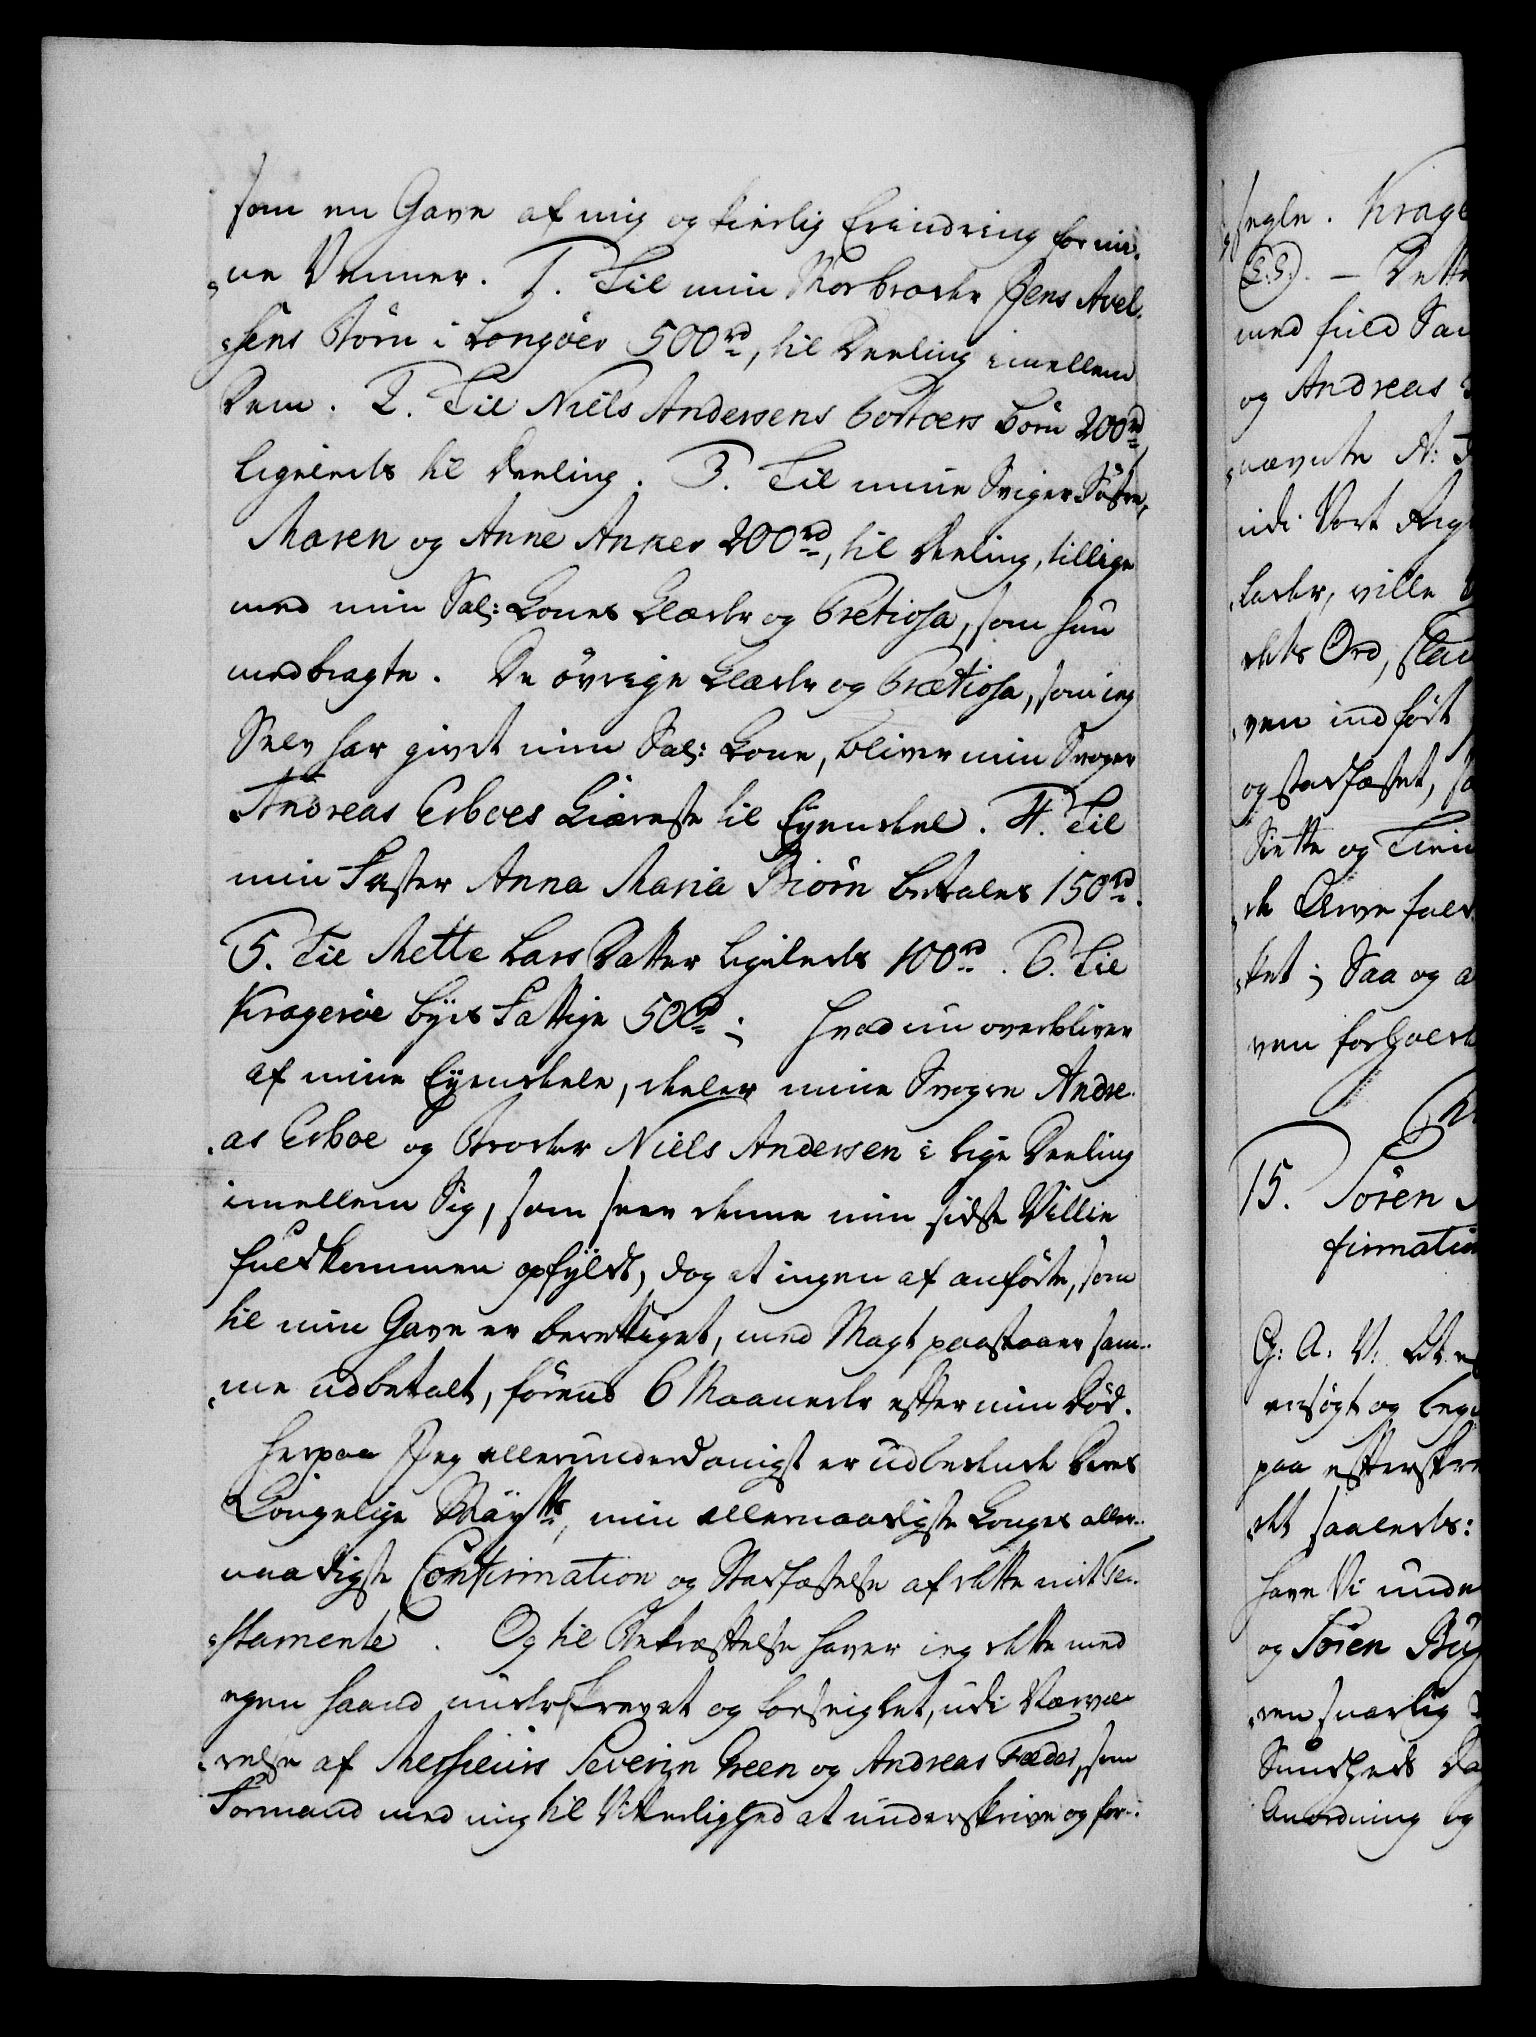 som en Gave af mig og kierlig Erindring for mi-
ne Venner. 1. Til min Morbroder Jens Avel-
sens Börn i Langöer 500rd, til Deeling imellem
Dem. 2. Til Niels Andersens Portoers börn 200rd
ligeleeds til Deeling. 3. Til mine Sviger Söstre,
Maren og Anne Anker 200rd, til Deeling, tillige
med min Sal: Kones Klæder og Pretiosa, som hun
medbragte. De övrige Klæder og Prætiosa, som jeg
Selv har givet min Sal: Kone, bliver min Svoger
Andreas Erboes Kiæreste til Eyendeel. 4. Til
min Faster Anna Maria Biörn betales 150rd.
5. Til Mette Lars Datter ligeleds 100rd. 6. Til
Kragerøe byes Fattige 50rd; hvad nu overbliver
af mine Eyendeele, deeler mine Svoger Andre-
as Erboe og Broder Niels Andersen i lige Deeling
imellem Sig, som seer denne min sidste Villie
fuldkommen opfyldt, dog at ingen af anförte, som
til min Gave er berettiget, med Magt paastaaer sam-
me udbetalt, förend 6 Maaneder efter min Död.
Herpaa Jeg allerunderdanigst er udbedende Deres
Kongelige Mayts, min allernaadigste Konges aller-
naadigste Confirmation og Stadfæstelse af dette mit Te-
stamente. Og til Bekræftelse haver jeg dette med
egen Haand underskrevet og forseiglet, udi Nærvæ-
relse af Messieurs Severin Green og Andreas Fæder, som
Formand med mig til Vitterlighed at underskrive og for-
segle. Krage
(L.S.). - Dette
med fuld
og Andreas
nævnte A:
udi Vort
lader, ville
dets Ord,
ven indfört
og stadfæstet,
Siette og
de Arve
ket; Saa og
ven forholde
15. Sören
firmation
G: A. V: At
ansögt og
paa efterskre
det saaleeds:
have Vi unde
og Sören
ven svarlig
Sundheds
Anordning og